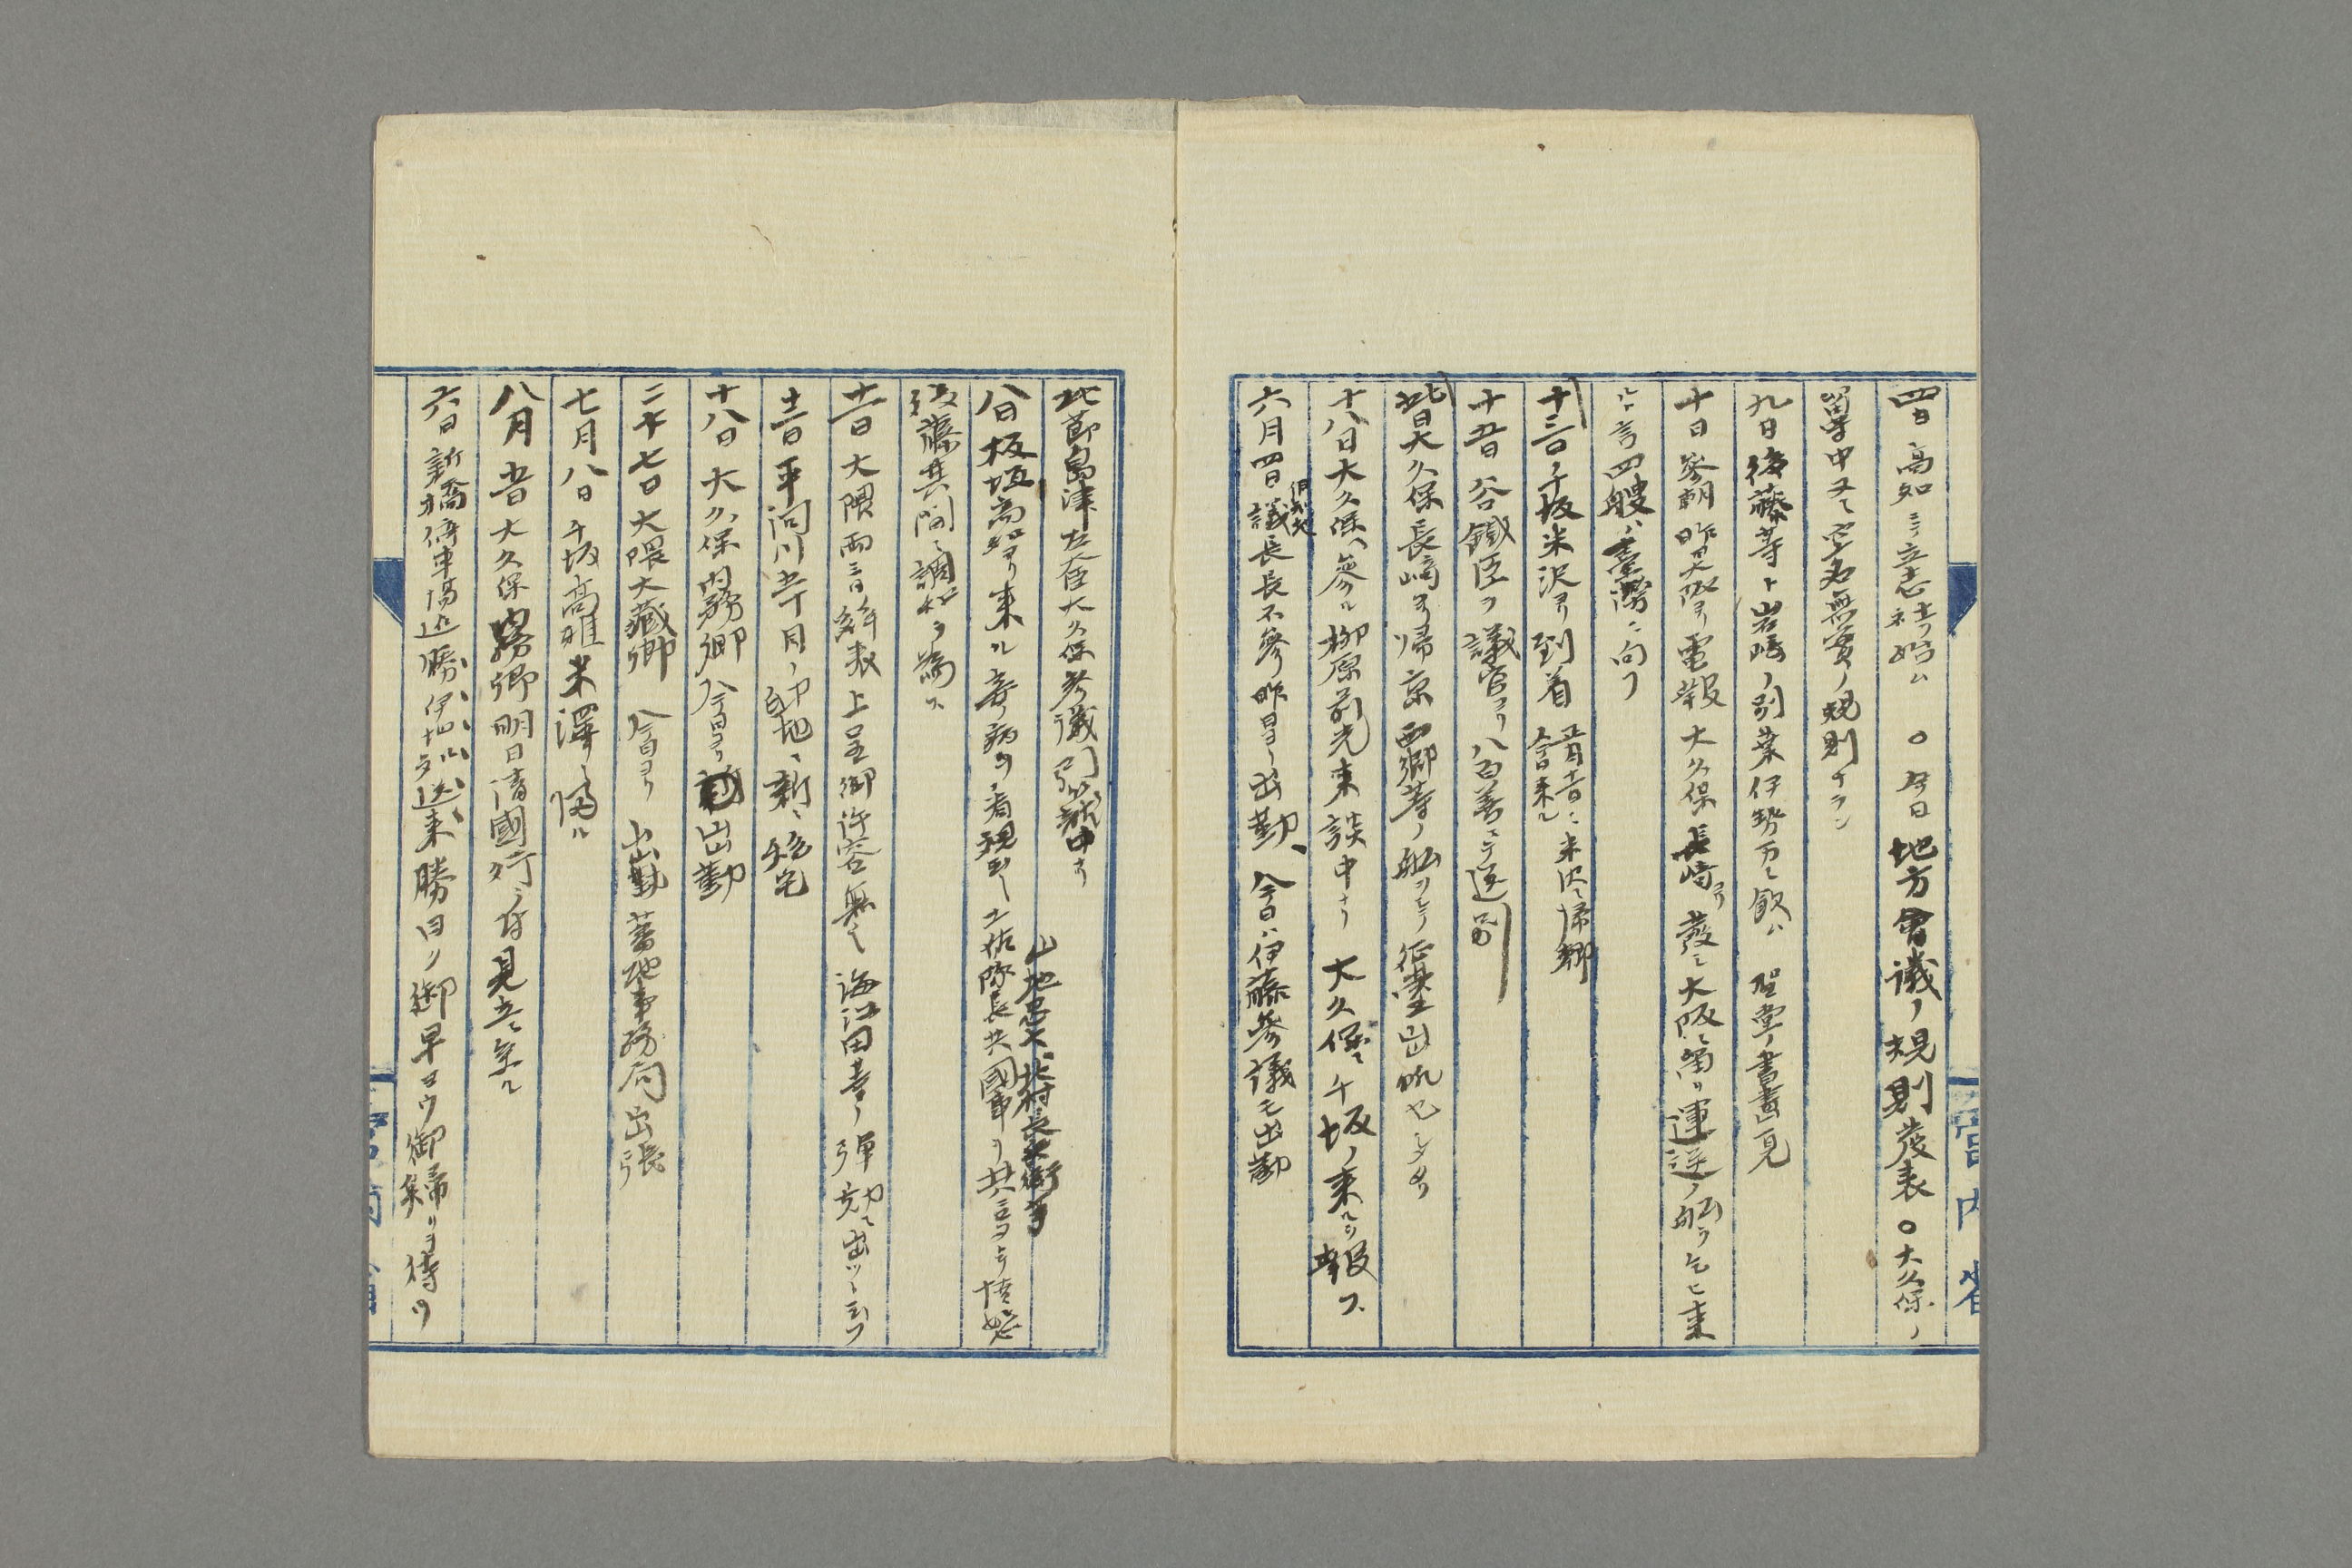 四日 高知ニテ立志社ヲ始ム ○今日地方會議ノ規則發表○大久保ノ
留守中ヌエ空名無實ノ規則ナラン
九日後藤等ト岩崎ノ別業伊勢万ニ飲ム 聖堂ノ書畫一見
十日参朝昨日大阪ヨリ電報大久保長崎ヨリ發シ大阪ニ留リ運送ノ船ヲ乞ヒ來
ルト言四艘ハ臺灣ニ向フ
十三日千坂米沢ヨリ到着 正月十一日ニ米沢ニ帰郷今日来ル
十五日谷鐵臣ヲ議官ヨリ八百善ニテ送別
此日大久保長﨑ヨリ帰京西郷等ノ船ヲシテ征臺出帆セシメタリ
十八日大久保ヘ參ル柳原前光來談中ナリ 大久保ニ千坂ノ来ルヲ報ス
六月四日伊地知議長不參昨日ヨリ出勤、今日ハ伊藤參議モ出勤
此節島津左大臣大久保参議引籠中ナリ
八日板垣高知ヨリ来ル妻ノ病ヲ看玉ヒシ土佐隊長共國事ヲ共ニ言タルニ憤怒
山地忠七北村長兵衛等
後藤其間ニ調和ヲ為ス
十一日大隈両三日辞表上呈御許容無シ海江田等ノ弾劾ニ出ツト云フ
十二日平河町五丁目ノ邸地ニ新ニ移宅
十八日大久保内務卿今日ヨリ出勤
二十七日大隈大藏卿 今日ヨリ出勤蕃地事務局出張
七月八日千坂高雅米澤ニ帰ル
八月五日大久保内務卿明日清國行ニ付見立ニ參ル
六日新橋停車場迄勝伊地知送ル来勝曰ク御早ヨウ御帰リヲ待ツ
宮内省